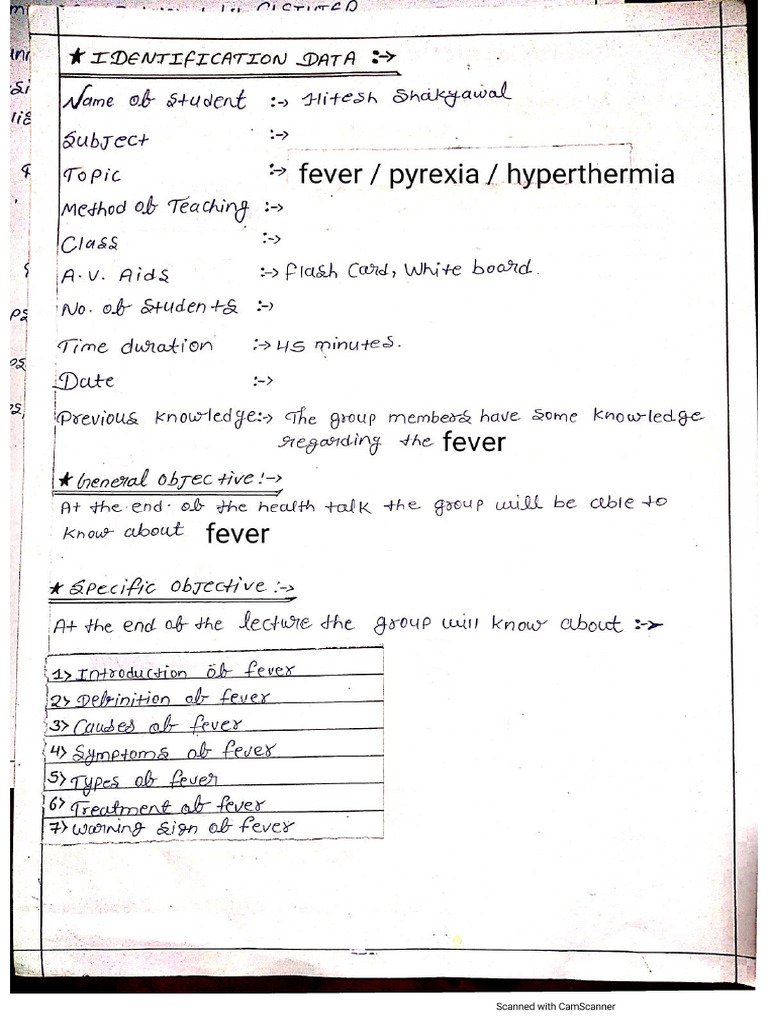 ★ IDENTIFICATION DATA :->
Name of Student :-> Hitesh Shakyawal
Subject :->
Topic :-> fever / pyrexia / hyperthermia
Method of Teaching :->
Class :->
A.V. Aids :-> Flash Card, White board.
No. of Students :->
Time duration :-> 45 minutes.
Date :->
Previous knowledge:-> The group members have some knowledge
regarding the fever
★ General Objective:->
At the end of the health talk the group will be able to
know about fever
★ Specific Objective:->
At the end of the lecture the group will know about :->
1> Introduction of fever
2> Definition of fever
3> Causes of fever
4> Symptoms of fever
5> Types of fever
6> Treatment of fever
7> Warning sign of fever
Scanned with CamScanner